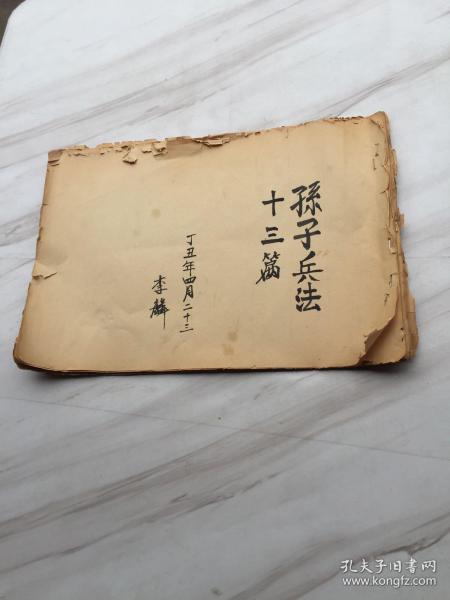 孫子兵法
十三篇
丁丑年四月二十三
李麟
孔夫子旧书网
www.kongfz.com